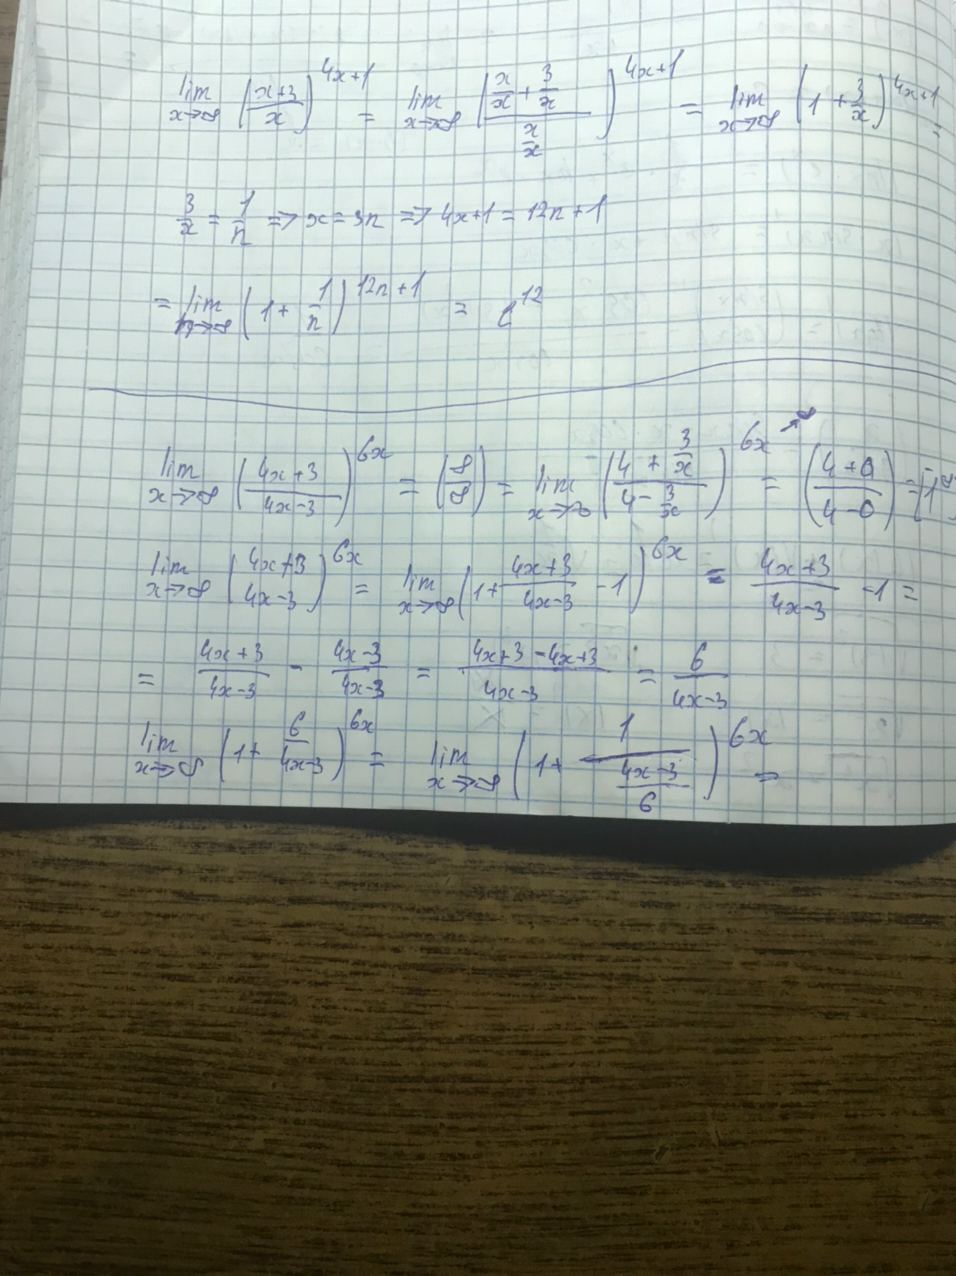 lim x→∞ ((x+3)/x)^(4x+1) = lim x→∞ ((x/x + 3/x)/(x/x))^(4x+1) = lim x→∞ (1 + 3/x)^(4x+1) =
3/x = 1/n => x = 3n => 4x+1 = 12n+1
= lim n→∞ (1 + 1/n)^(12n+1) = e^12
lim x→∞ ((4x+3)/(4x-3))^(6x) = (∞/∞) = lim x→∞ ((4 + 3/x)/(4 - 3/x))^(6x→∞) = ((4+0)/(4-0)) = [1^∞
lim x→∞ ((4x+3)/(4x-3))^(6x) = lim x→∞ (1 + (4x+3)/(4x-3) - 1)^(6x) = (4x+3)/(4x-3) - 1 =
= (4x+3)/(4x-3) - (4x-3)/(4x-3) = (4x+3-4x+3)/(4x-3) = 6/(4x-3)
lim x→∞ (1 + 6/(4x-3))^(6x) = lim x→∞ (1 + 1/((4x-3)/6))^(6x) =